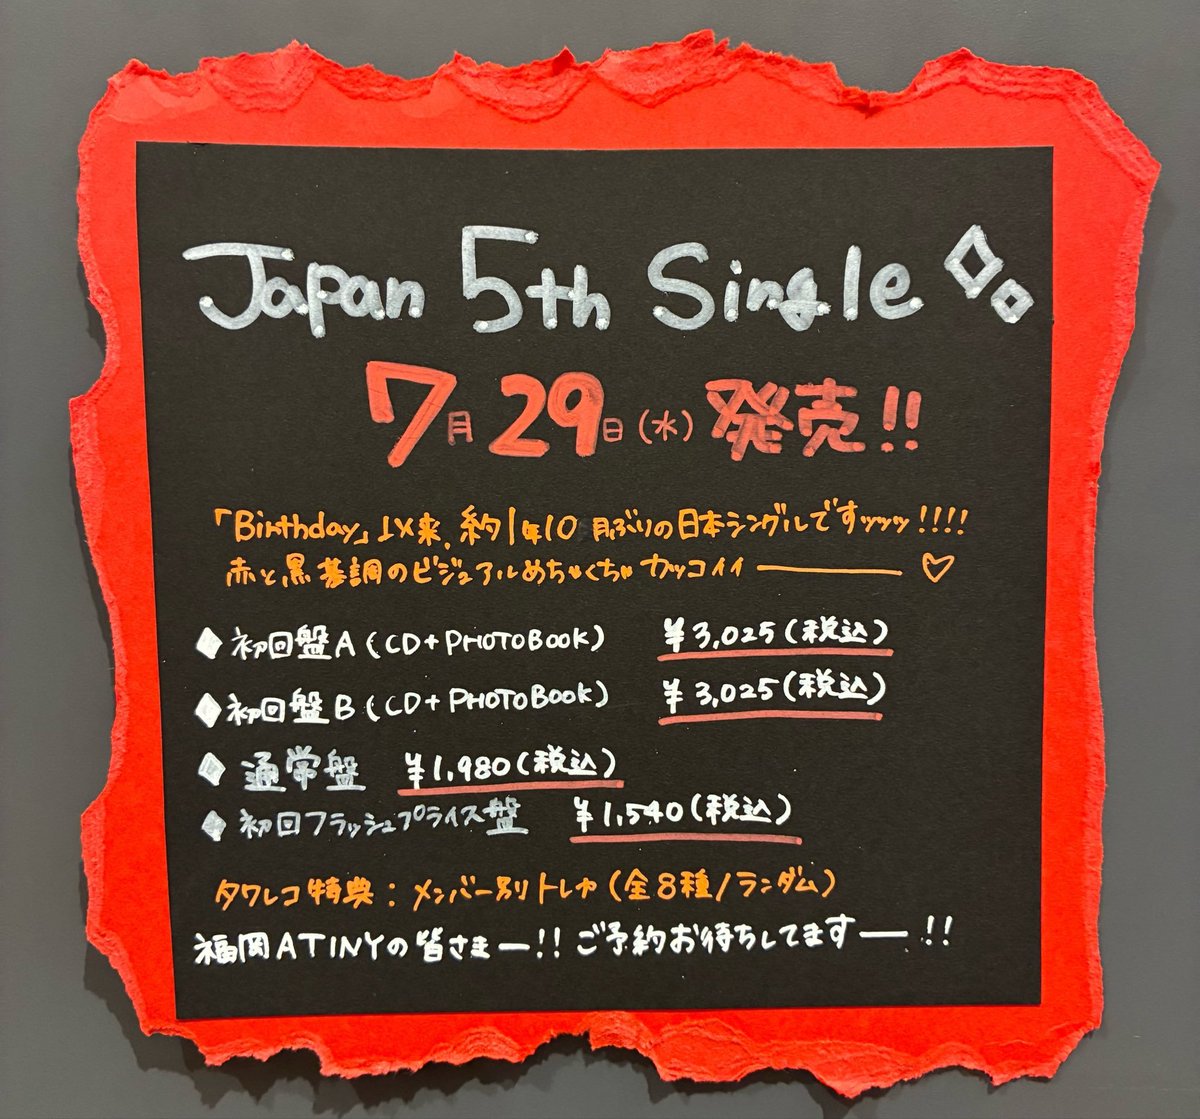 Japan 5th Single
7月29日(水)発売!!
「Birthday」以来、約1年10ヶ月ぶりの日本シングルですッッッ!!!!
赤と黒基調のビジュアルめちゃくちゃカッコイイ――♡
◆初回盤A(CD+PHOTOBOOK) ¥3,025(税込)
◆初回盤B(CD+PHOTOBOOK) ¥3,025(税込)
◆通常盤 ¥1,980(税込)
◆初回フラッシュプライス盤 ¥1,540(税込)
タワレコ特典:メンバー別トレカ(全8種/ランダム)
福岡ATINYの皆さまー!!ご予約お待ちしてますー、!!